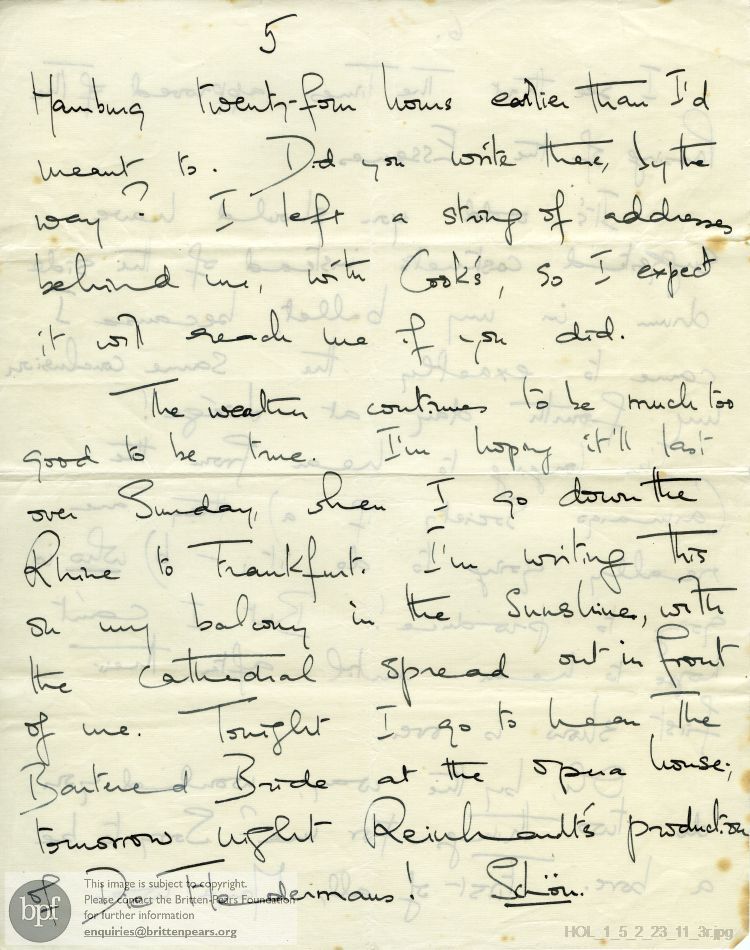 5
Hamburg twenty-four hours earlier than I'd
meant to. Did you write there, by the
way? I left a string of addresses
behind me, with Cook's, so I expect
it will reach me if you did.
The weather continues to be much too
good to be true. I'm hoping it'll last
over Sunday, when I go down the
Rhine to Frankfurt. I'm writing this
on my balcony in the sunshine, with
the cathedral spread out in front
of me. Tonight I go to hear The
Bartered Bride at the opera house;
tomorrow night Reinhardt's production
of Die Fledermaus! Schön.
bpf
This image is subject to copyright.
Please contact the Britten-Pears Foundation
for further information
enquiries@brittenpears.org
HOL_1_5_2_23_11_3r.jpg